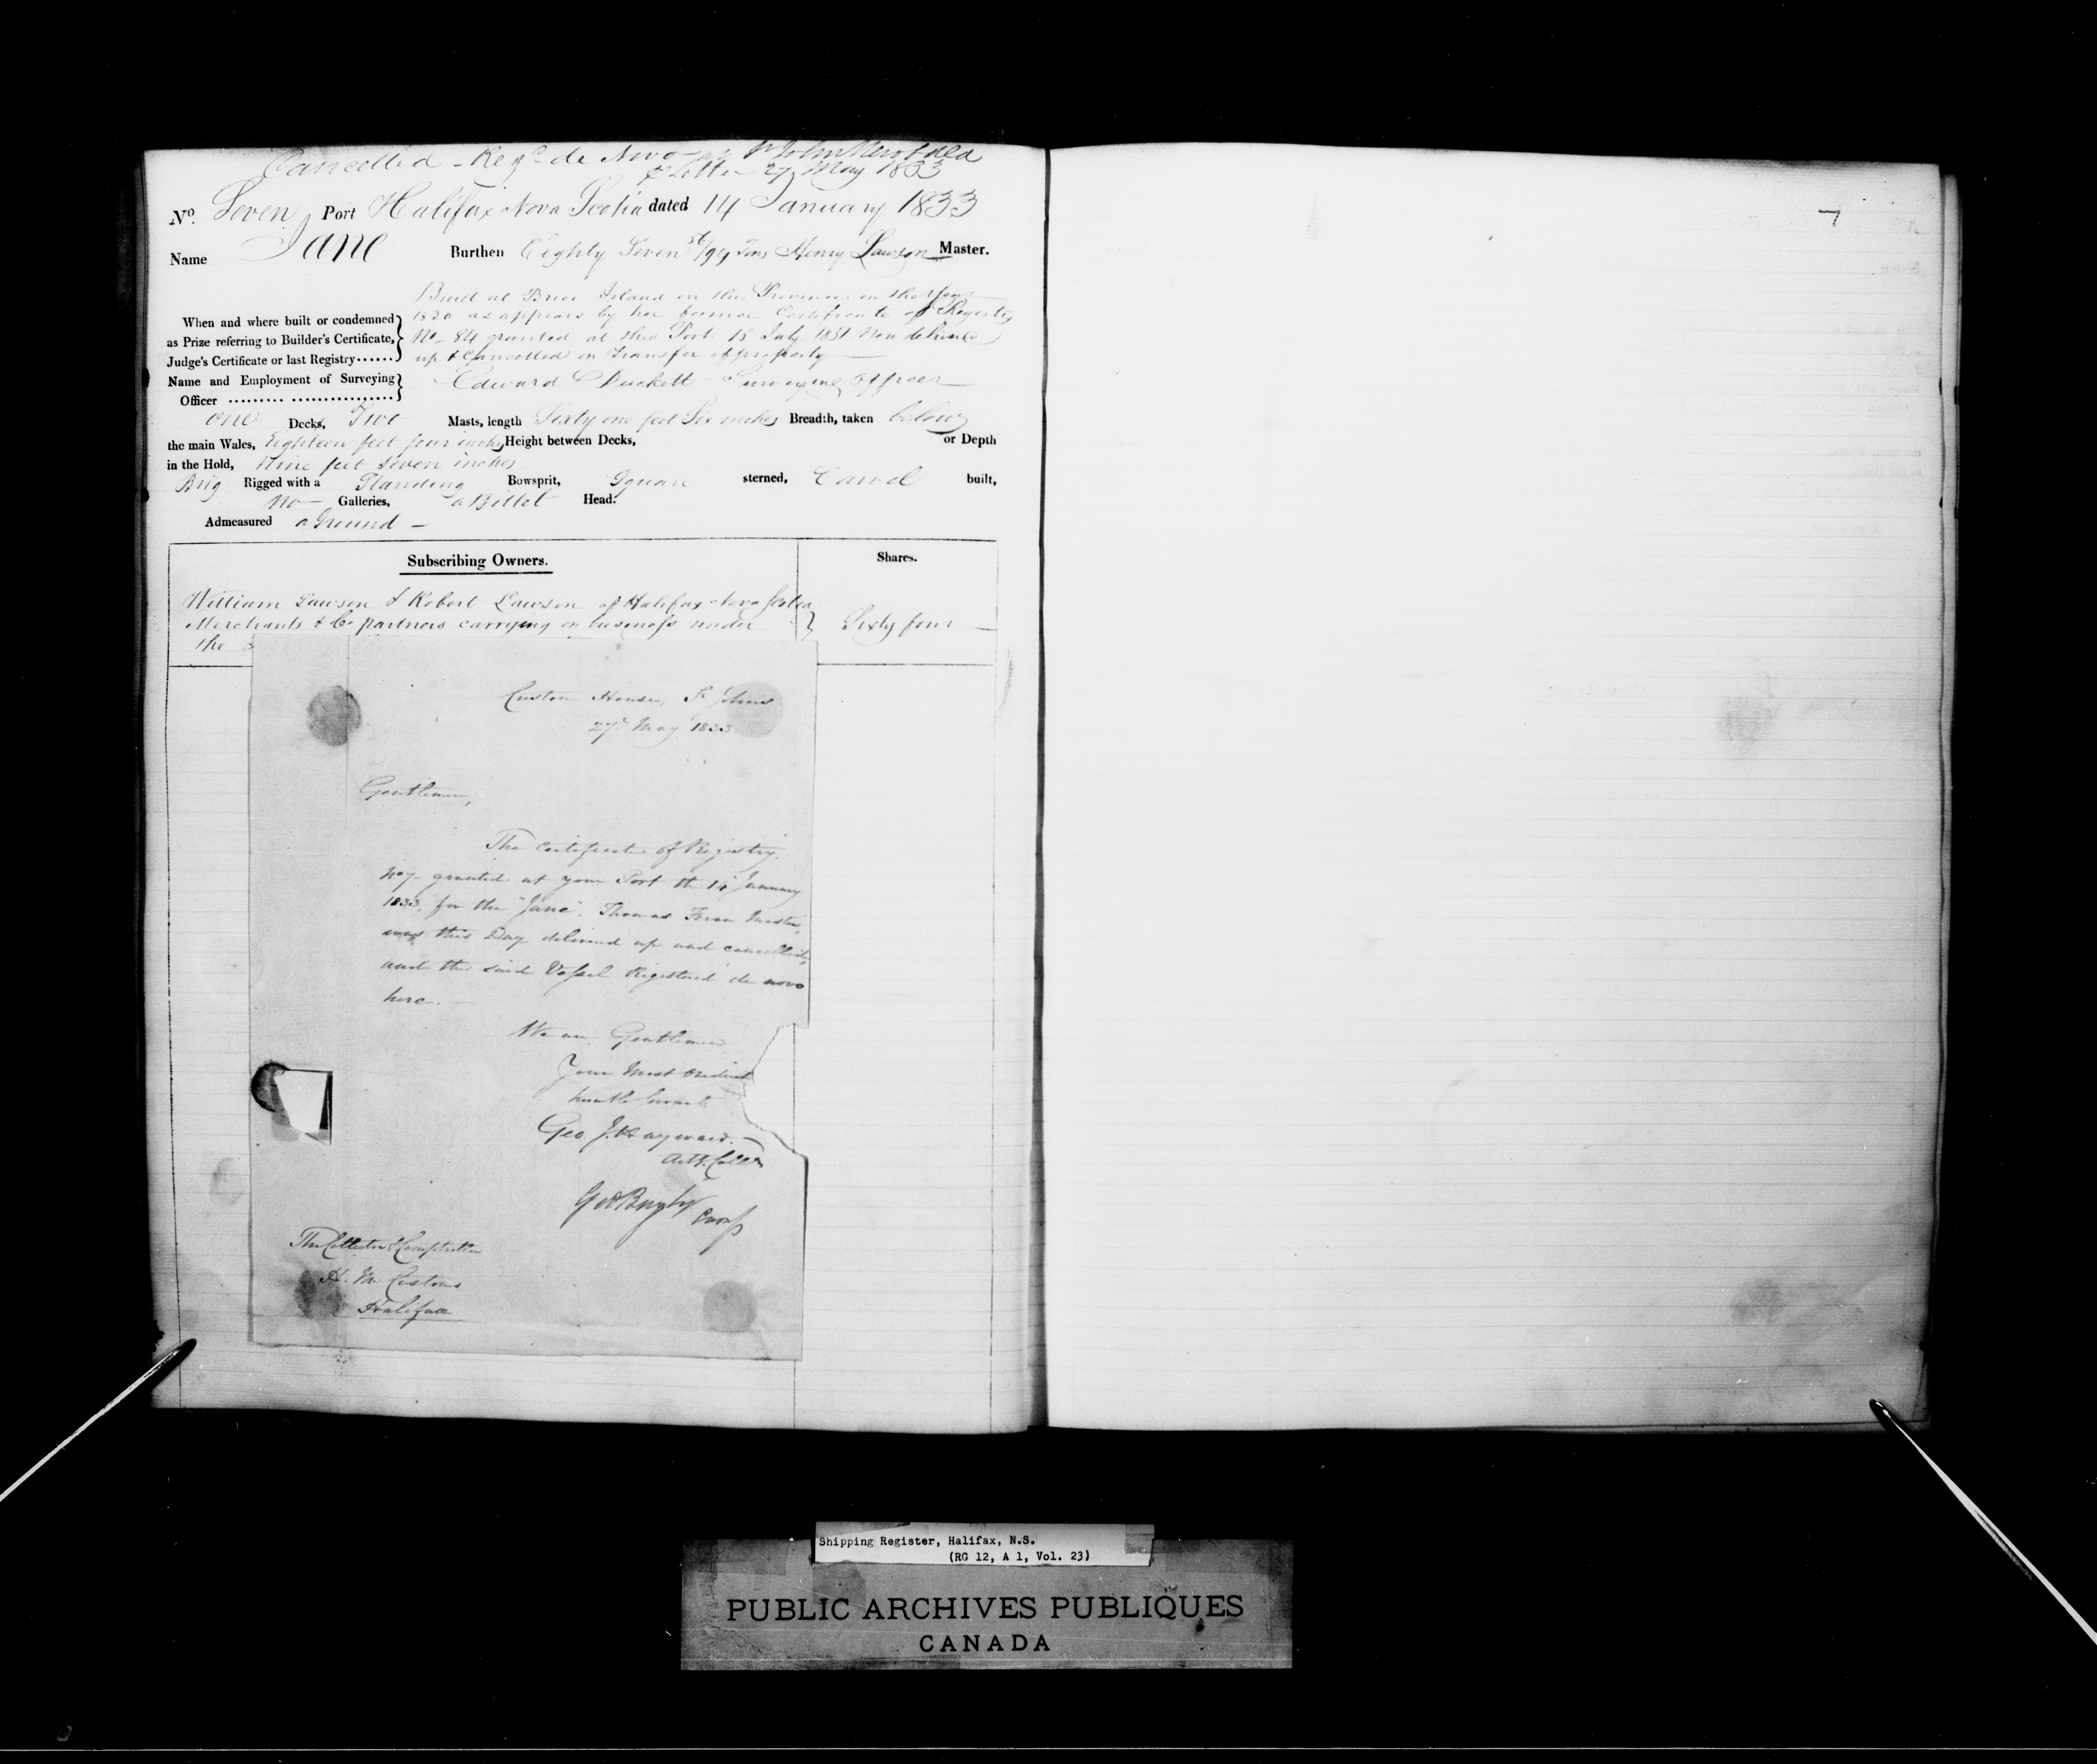 Cancelled - Regd de Novo at St John Newfdld
pr Letter 27 May 1833
No. Seven Port Halifax Nova Scotia dated 14 January 1833
Name Jane Burthen Eighty Seven /94 Tons Henry Lawson Master.
Built at Brier Island in this Province in the year
When and where built or condemned 1830 as appears by her former Certificate of Registry
as Prize referring to Builder's Certificate, No. 84 granted at this Port 15 July 1831 now delivered
Judge's Certificate or last Registry...... up & Cancelled on Transfer of property
Name and Employment of Surveying Edward Duckett Surveying Officer
Officer ......... ................
one Decks, Two Masts, length Sixty one feet Six inches Breadth, taken below
the main Wales, Eighteen feet four inches Height between Decks, or Depth
in the Hold, Nine feet seven inches
Brig Rigged with a Standing Bowsprit, Square sterned, Carvel built,
No Galleries, a Billet Head.
Admeasured aGround
Subscribing Owners. Shares.
William Lawson & Robert Lawson of Halifax Nova Scotia
Merchants & Co partners carrying on business under Sixty four
the
Custom House, St Johns
27th May 1833
Gentlemen,
The Certificate of Registry,
No 7 granted at your Port the 14 January
1833, for the "Jane", Thomas Master,
was this Day delivered up and cancelled,
and the said Vessel Registered de novo
here.
We are Gentlemen
Your Most Obedient
humble Servants
Geo. J. Hayward.
Actg. Collr
The Collector & Comptroller
H. M. Customs
Halifax
7
Shipping Register, Halifax, N.S.
(RG 12, A 1, Vol. 23)
PUBLIC ARCHIVES PUBLIQUES
CANADA